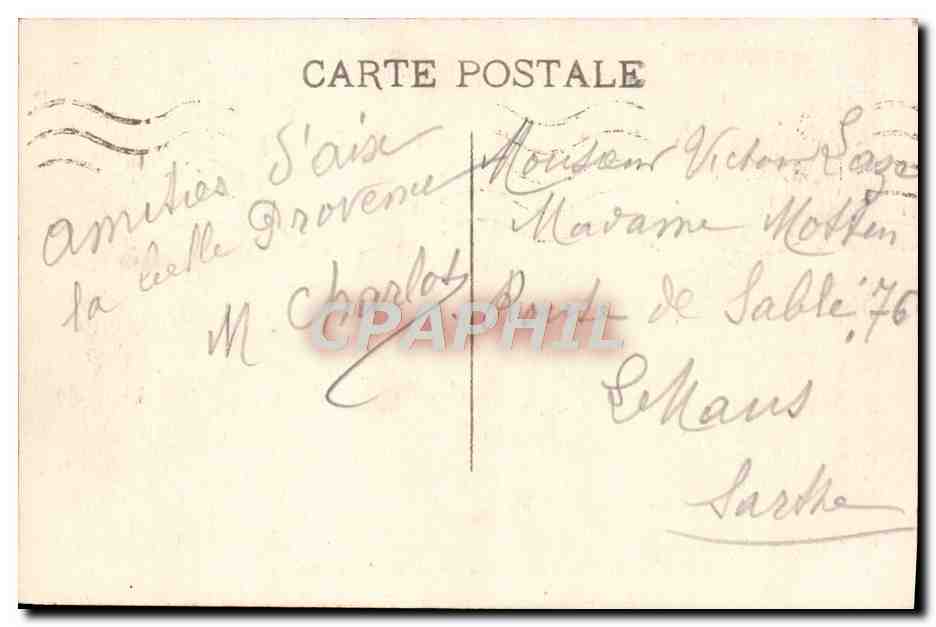 CARTE POSTALE
Amitiés d'aix
la belle Provence
M. Charlot
Monsieur Victor
Madame
Route de Sablé, 76
Le Mans
Sarthe
CPAPHIL